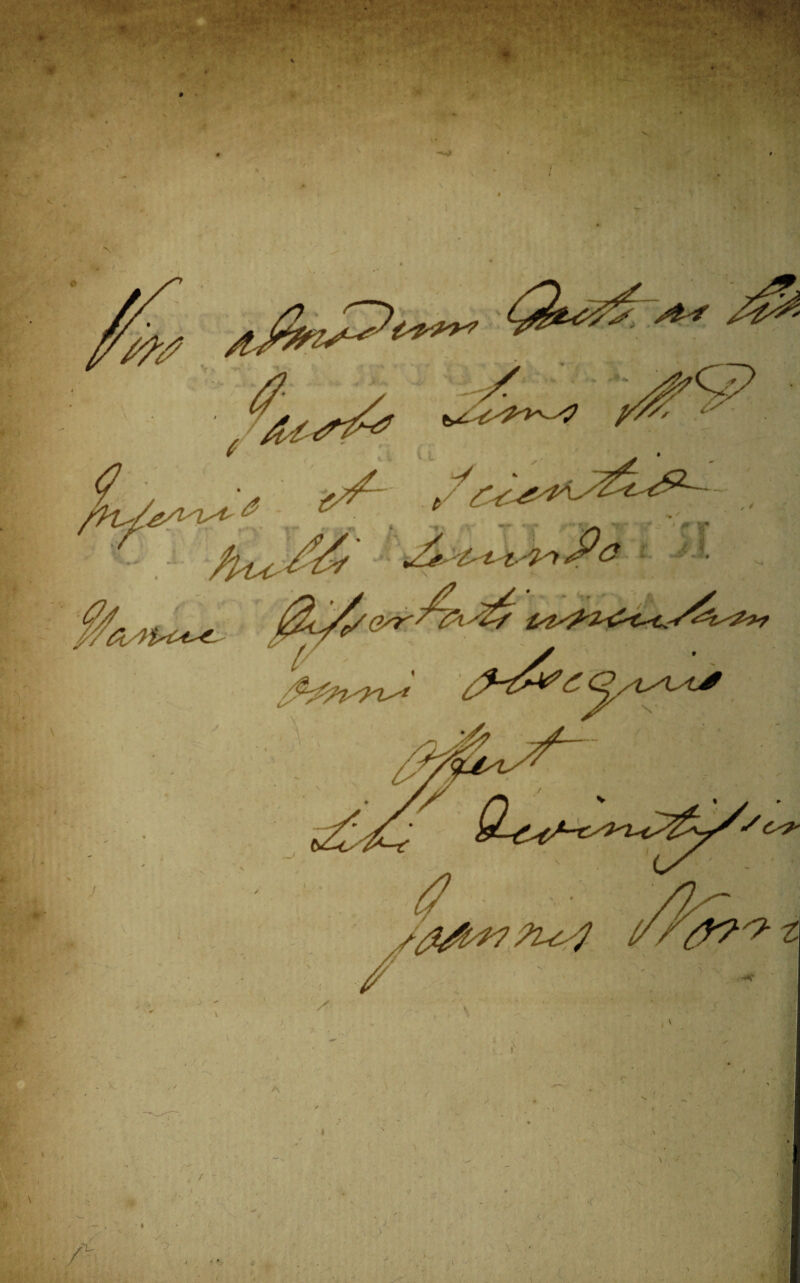 Viro admodum Docto ac
Jacobo Sims MD
Ingenio et Scientia
Nulli Secundo
Hancce Dissertatiunculam
omni obsequio
offert
Sibi Devinctissim
Joannes Norri